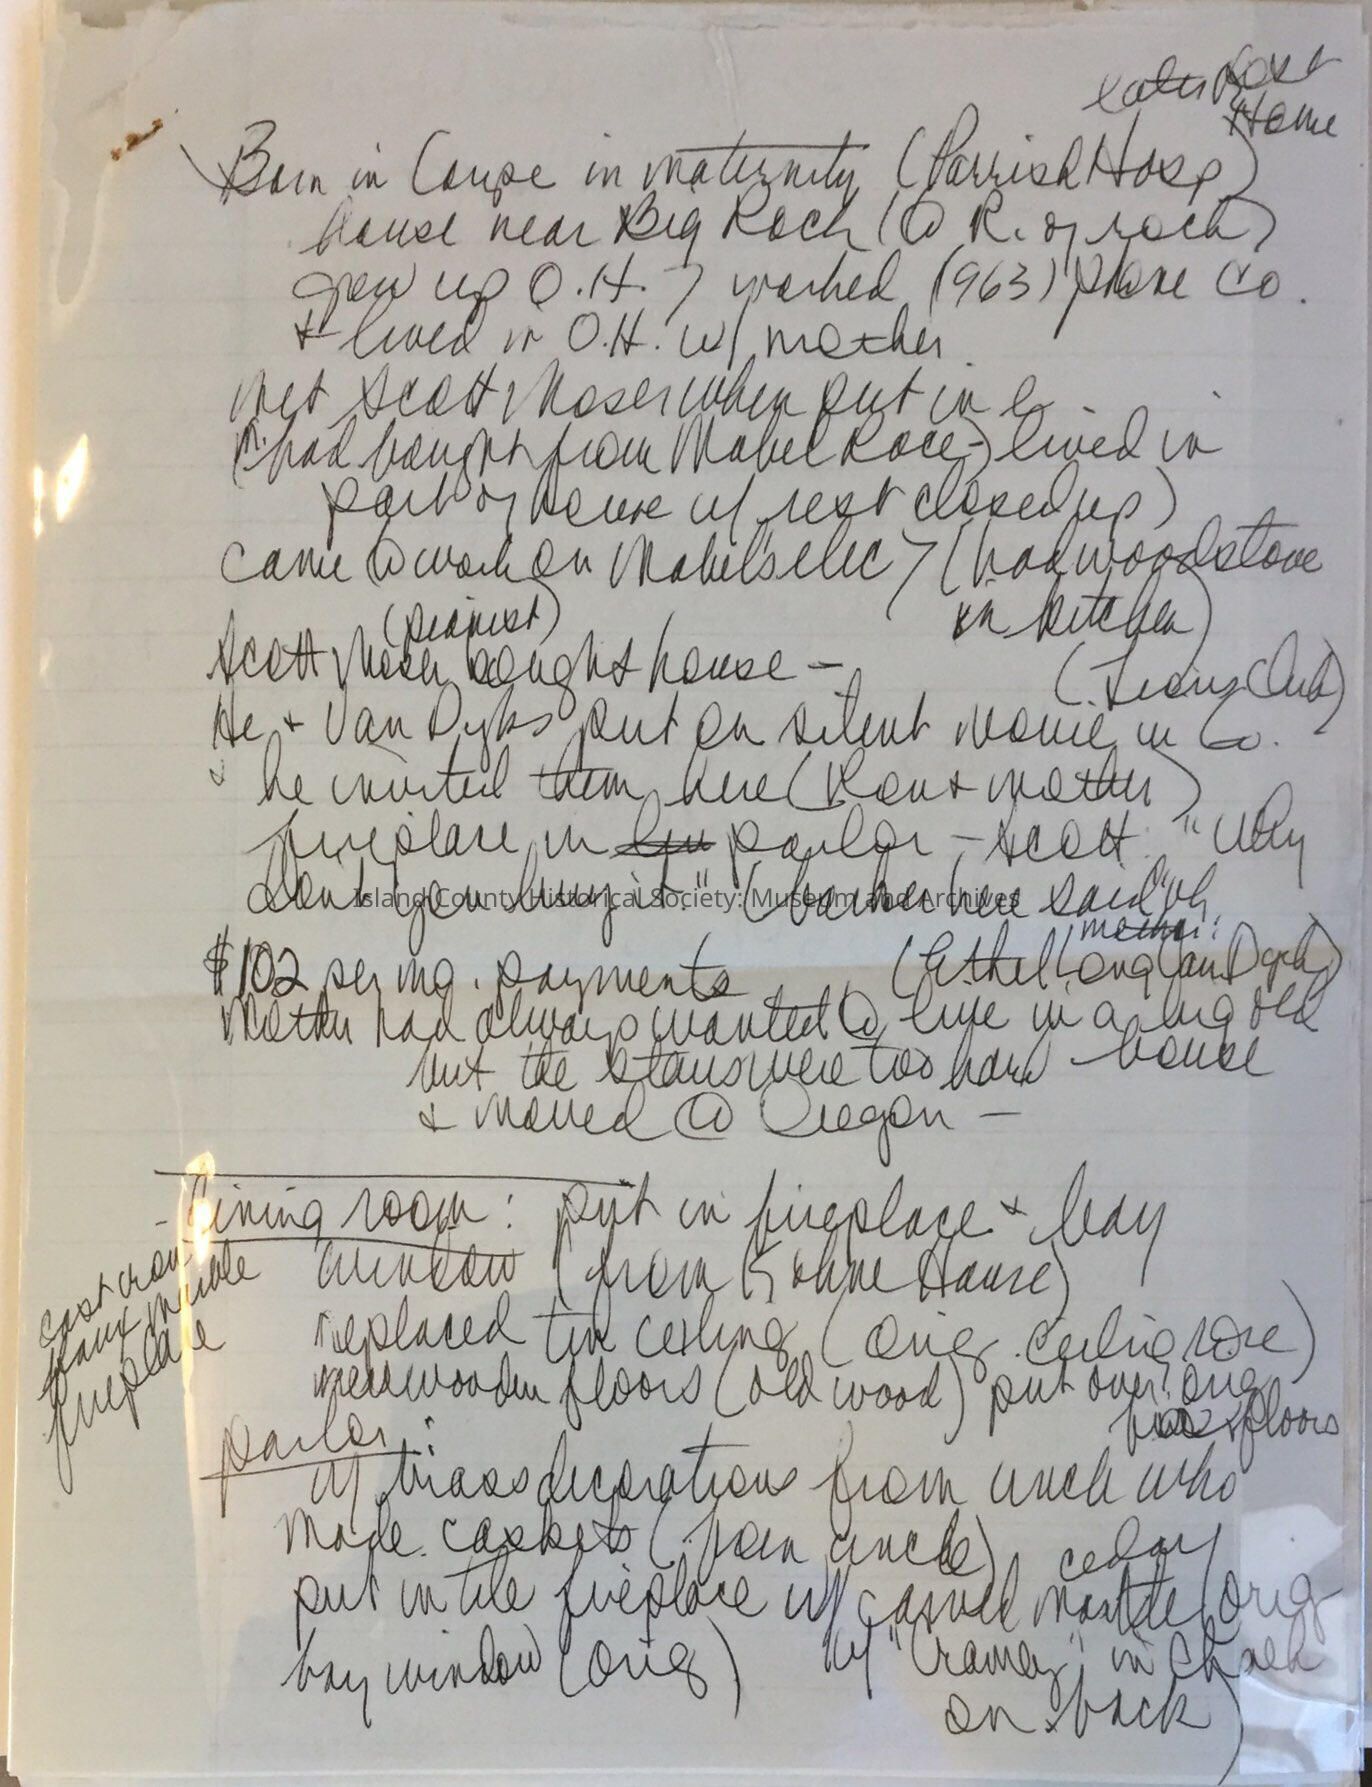 later Rest
Home
Born in Coupe in maternity (Parrish Hosp)
house near Big Rock (@ R. of rock)
grew up O.H. > worked (1963) phone co.
+ lived in O.H. w/ mother
met Scott Moser when put in e
(had bought from Mabel Race-) lived in
part of house w/ rest closed up)
came @ work on Mabel's elec > (had woodstove
in kitchen)
(pianist)
Scott Moser bought house -
(Lions Club)
He + Van Dyks put on silent movie in Co.
+ he invited them here (Ron + mother)
fireplace in parlor - Scott: "Why
don't you buy it" (banker here said oh
Island County Historical Society: Museum and Archives
mother:
$102 per mo. payments (Ethel Lang Van Dyck)
Mother had always wanted @ live in a big old
but the stairs were too hard - house
+ moved @ Oregon -
- Dining room: put in fireplace + bay
window (from Kohne House)
cast iron
faux marble
fireplace
replaced tin ceiling (orig. ceiling rose)
new wooden floors (old wood) put over orig
fir floors
parlor:
w/ brass decorations from uncle who
made caskets (from uncle)
cedar
put in tile fireplace w/ carved mantle (orig
bay window (orig) w/ "Cramer" in chalk
on back)